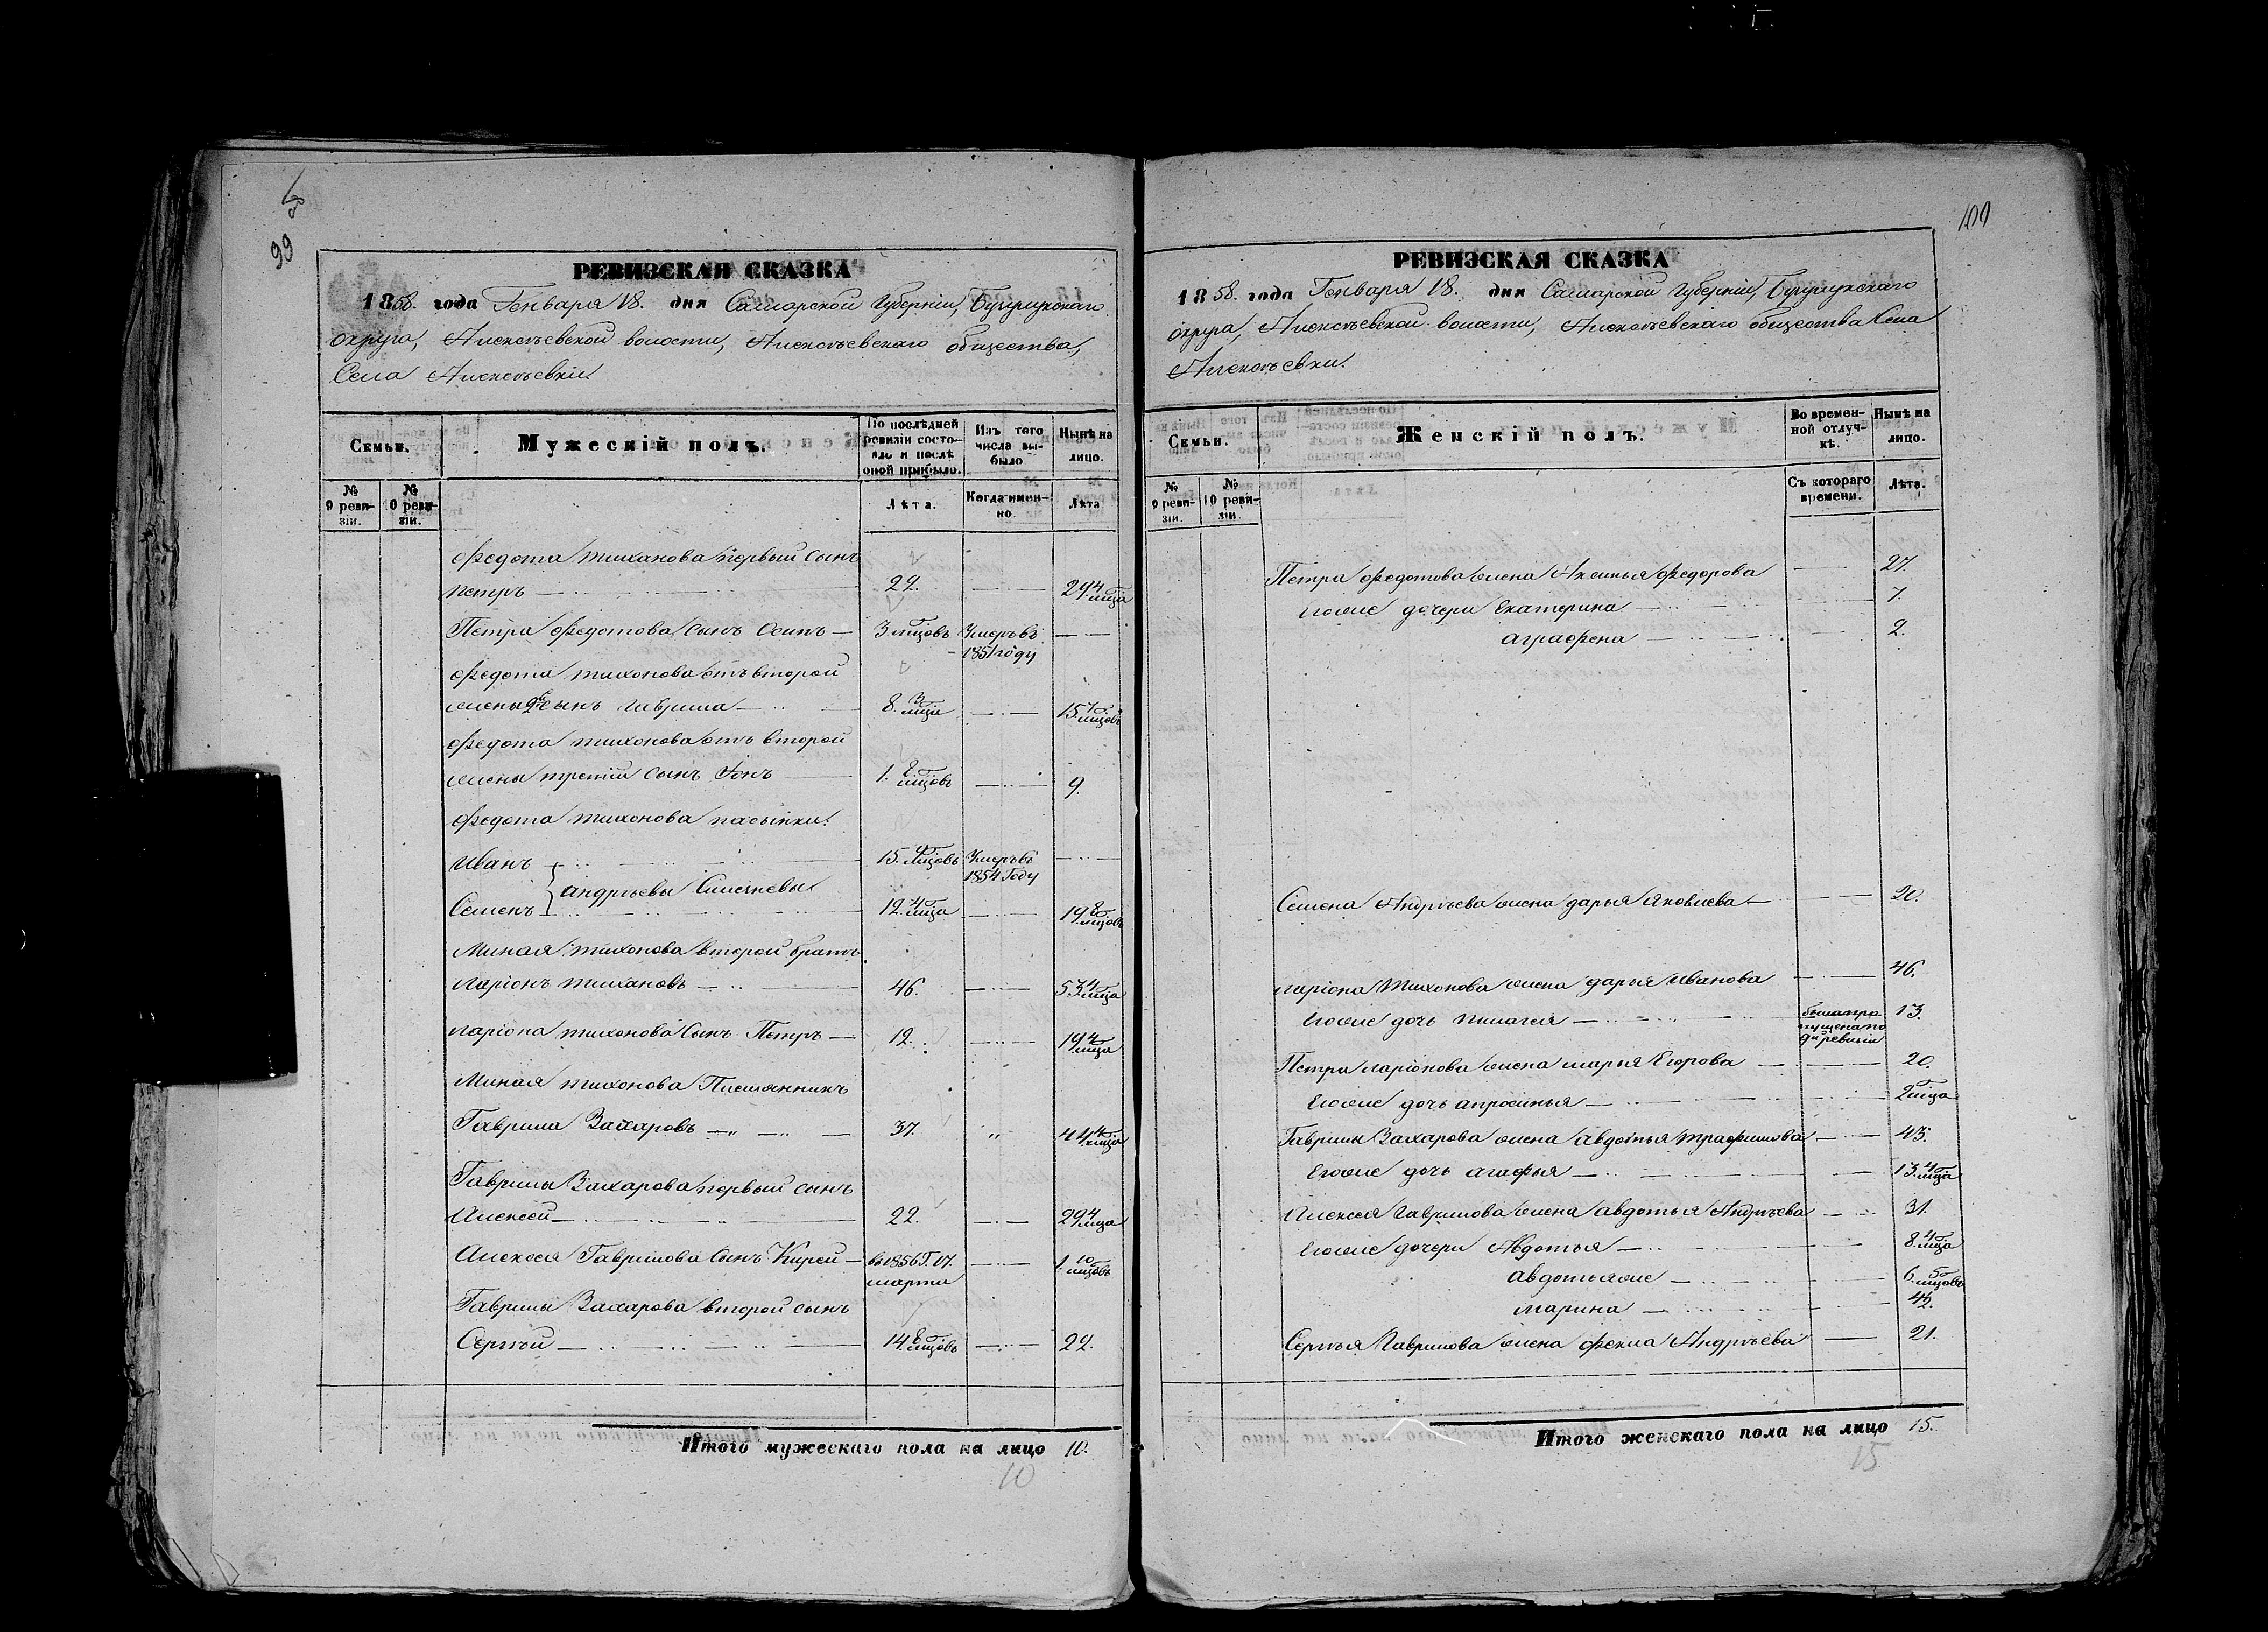 99
РЕВИЗСКАЯ СКАЗКА
1858. года Генваря 18. дня Самарской Губерніи, Бузулукскаго
округа, Алексѣевской волости, Алексѣевскаго общества,
Села Алексѣевки.
Семьи.
Мужескій полъ.
По послѣдней ревизіи состояло и послѣ оной прибыло.
Изъ того числа выбыло
Нынѣ на лицо.
№ 9 ревизіи.
№ 10 ревизіи.
Лѣта.
Когда именно.
Лѣта
Федота Тиханова первый сынъ
Петръ 22. 29 4 мѣца
Петра Федотова сынъ Осипъ 3 мѣцовъ Умеръ въ 1851 году
Федота Тихонова отъ второй
жены 2й сынъ Гаврила 8. 3 мѣца 15. мѣцовъ
Федота Тихонова отъ второй
жены третій сынъ Іонъ 1. 8 мѣцовъ 9.
Федота Тихонова пасынки.
Иванъ 15. мѣцовъ Умеръ въ 1854 Году
Андрѣевы
Семенъ 12. 4 мѣца 19 8 мѣцовъ
Миная Тихонова второй братъ
Ларіонъ Тихановъ 46. 53 4 мѣца
Ларіона Тихонова сынъ Петръ 12. 19 4 мѣца
Миная Тихонова Племянникъ
Гаврила Захаровъ 37. " 44 4 мѣца
Гаврилы Захарова первый сынъ
Алексей 22. 29 4 мѣца
Алексея Гаврилова сынъ Кирей въ 1856 Г. 17. марта 1. 10 мѣцовъ
Гаврилы Захарова второй сынъ
Сергѣй 14. 8 мѣцовъ 22.
Итого мужескаго пола на лицо 10.
10
100
РЕВИЗСКАЯ СКАЗКА
1858. года Генваря 18. дня Самарской Губерніи, Бузулукскаго
округа, Алексѣевской волости, Алексѣевскаго общества Села
Алексѣевки.
Семьи.
Женскій полъ.
Во временной отлучкѣ.
Нынѣ на лицо.
№ 9 ревизіи.
№ 10 ревизіи.
Съ котораго времени.
Лѣта.
Петра Федотова жена Аксинья Федорова 27.
Ихже дочери Екатерина 7.
Аграфена 2.
Семена Андрѣева жена Дарья Яковлева 20.
Ларіона Тихонова жена Дарья Иванова 46.
Егоже дочь Пилагея была пропущена по 9й ревизіи 13.
Петра Ларіонова жена Марья Егорова 20.
Егоже дочь Апросинья 2 мѣца
Гаврилы Захарова жена Авдотья Трафимова 43.
Егоже дочь Агафья 13. 4 мѣца
Алексея Гаврилова жена Авдотья Андрѣева 31.
Егоже дочери Авдотья 8. 4 мѣца
Авдотьяже 6. 5 мѣцовъ
Марина
Сергѣя Гаврилова жена Фекла Андрѣева 21.
Итого женскаго пола на лицо 15.
15